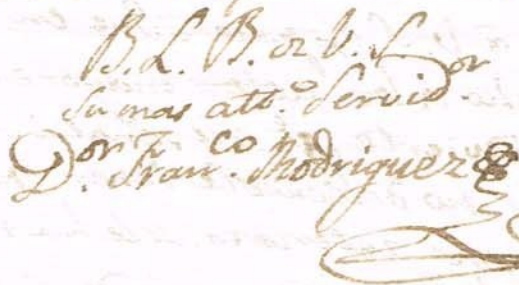 B. L. B. de V. S.
Su mas att.º Servid.or
D.or Fran.co Rodriguez